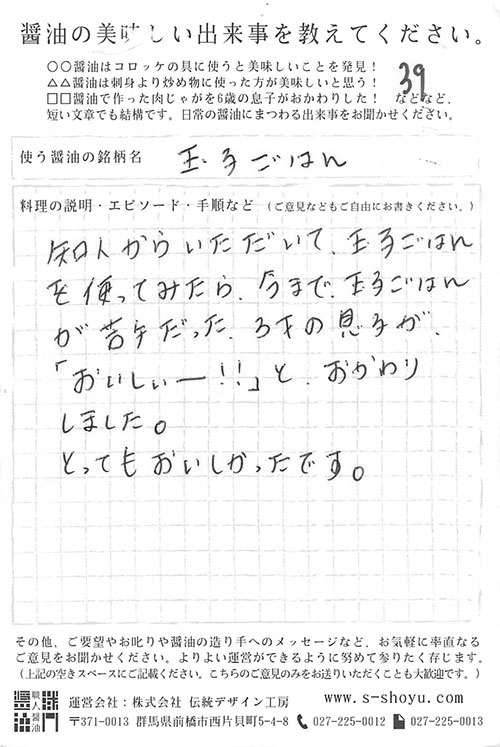 醤油の美味しい出来事を教えてください。
○○醤油はコロッケの具に使うと美味しいことを発見！
△△醤油は刺身より炒め物に使った方が美味しいと思う！
□□醤油で作った肉じゃがを6歳の息子がおかわりした！ などなど、
短い文章でも結構です。日常の醤油にまつわる出来事をお聞かせください。
39
使う醤油の銘柄名 玉子ごはん
料理の説明・エピソード・手順など （ご意見などもご自由にお書きください。）
知人からいただいて、玉子ごはん
を使ってみたら、今まで、玉子ごはん
が苦手だった、3才の息子が、
「おいしぃー!!」と、おかわり
しました。
とってもおいしかったです。
その他、ご要望やお叱りや醤油の造り手へのメッセージなど、お気軽に率直なる
ご意見をお聞かせください。よりよい運営ができるように努めて参りたく存じます。
（上記の空きスペースにご記載ください。こちらのご意見のみをお送りいただくことも大歓迎です。）
職人醤油
運営会社：株式会社 伝統デザイン工房 www.s-shoyu.com
〒371-0013 群馬県前橋市西片貝町5-4-8 027-225-0012 027-225-0013